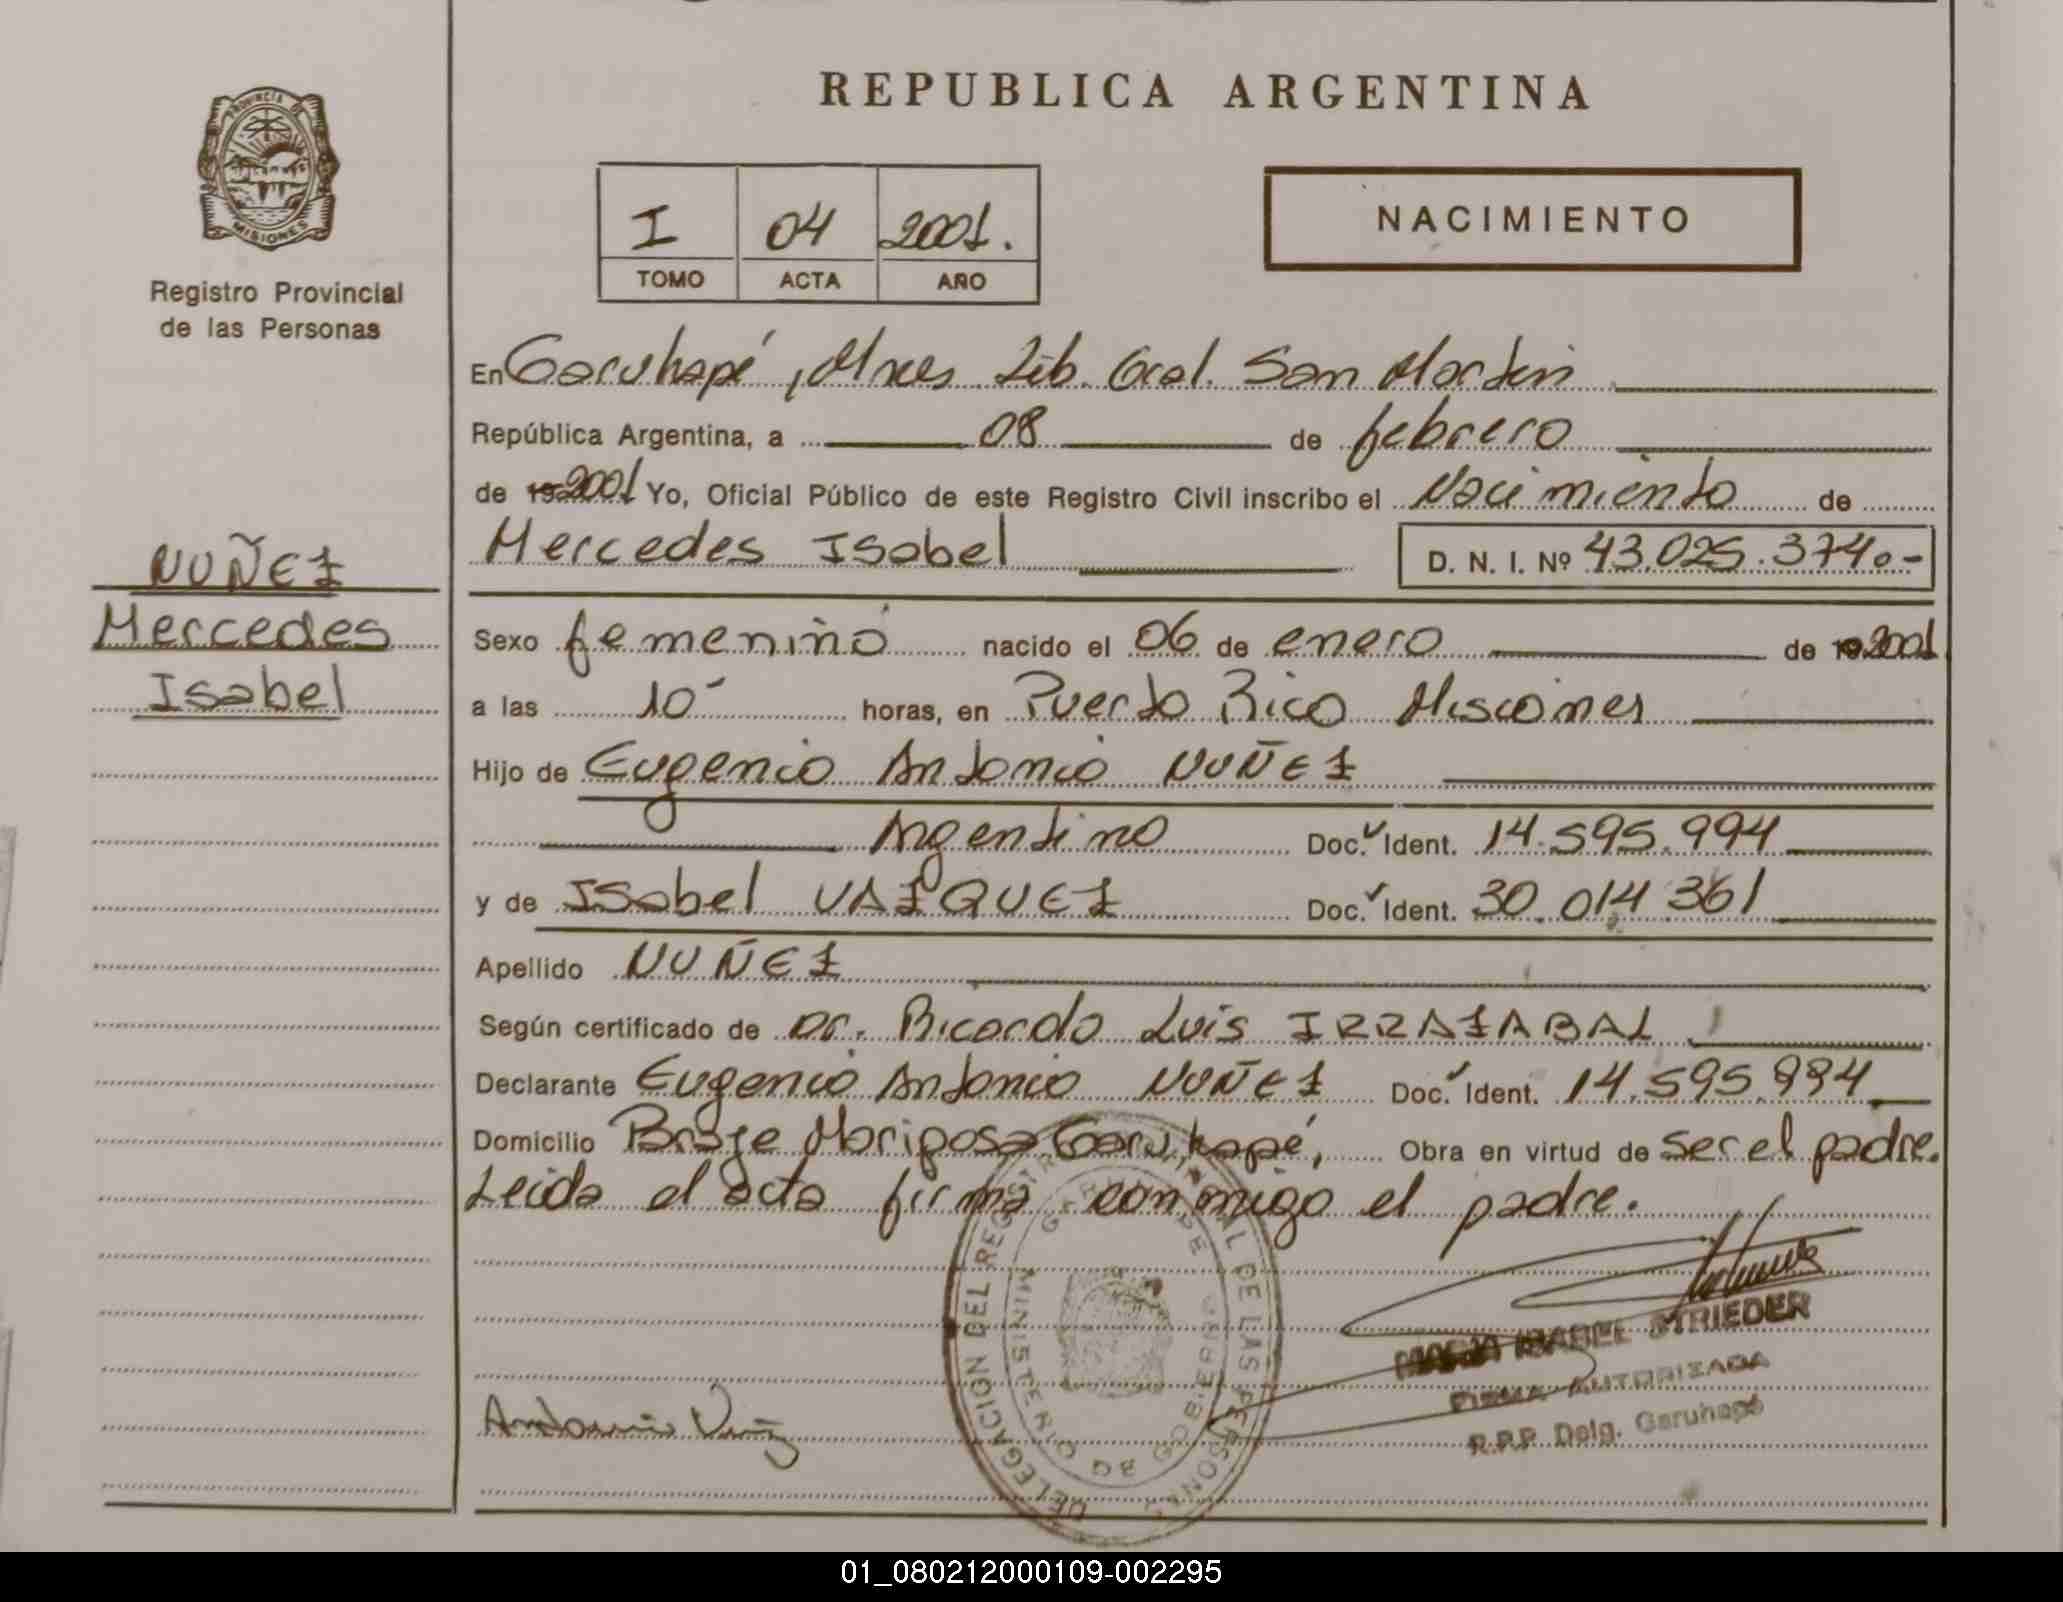 REPUBLICA ARGENTINA
PROVINCIA DE
MISIONES
Registro Provincial
de las Personas
I 04 2001.
TOMO ACTA AÑO
NACIMIENTO
En Garuhapé, Mnes Lib. Gral. San Martin
República Argentina, a 08 de febrero
de 19 2001 Yo, Oficial Público de este Registro Civil inscribo el Nacimiento de
Mercedes Isabel D. N. I. Nº 43.025.374.-
NUÑEZ
Mercedes
Isabel
Sexo femenino nacido el 06 de enero de 19 2001
a las 10 horas, en Puerto Rico Misiones
Hijo de Eugenio Antonio NUÑEZ
Argentino Doc. Ident. 14.595.994
y de Isabel VAZQUEZ Doc. Ident. 30.014.361
Apellido NUÑEZ
Según certificado de Dr. Ricardo Luis IRRAZABAL
Declarante Eugenio Antonio NUÑEZ Doc. Ident. 14.595.994
Domicilio Mariposa Garuhapé, Obra en virtud de ser el padre.
Leida el acta firma conmigo el padre.
DELEGACION DEL REGISTRO PROVINCIAL DE LAS PERSONAS
GARUHAPE
MINISTERIO DE GOBIERNO
MARIA ISABEL STRIEDER
FIRMA AUTORIZADA
R.P.P. Delg. Garuhapé
Antonio
01_080212000109-002295